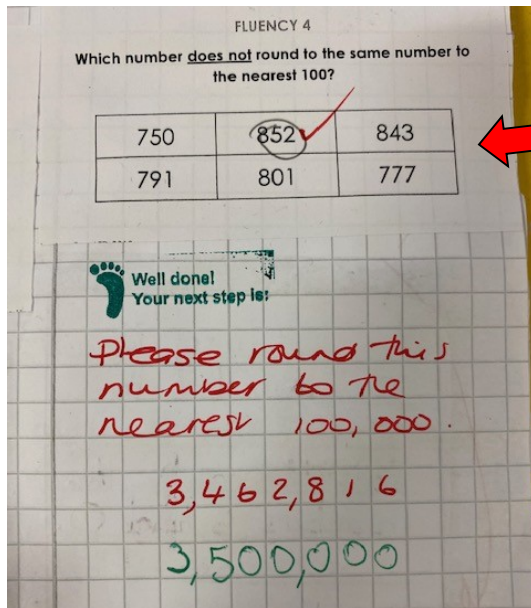 FLUENCY 4
Which number does not round to the same number to
the nearest 100?
750 852 843
791 801 777
Well done!
Your next step is:
Please round this
number to the
nearest 100,000.
3,462,816
3,500,000